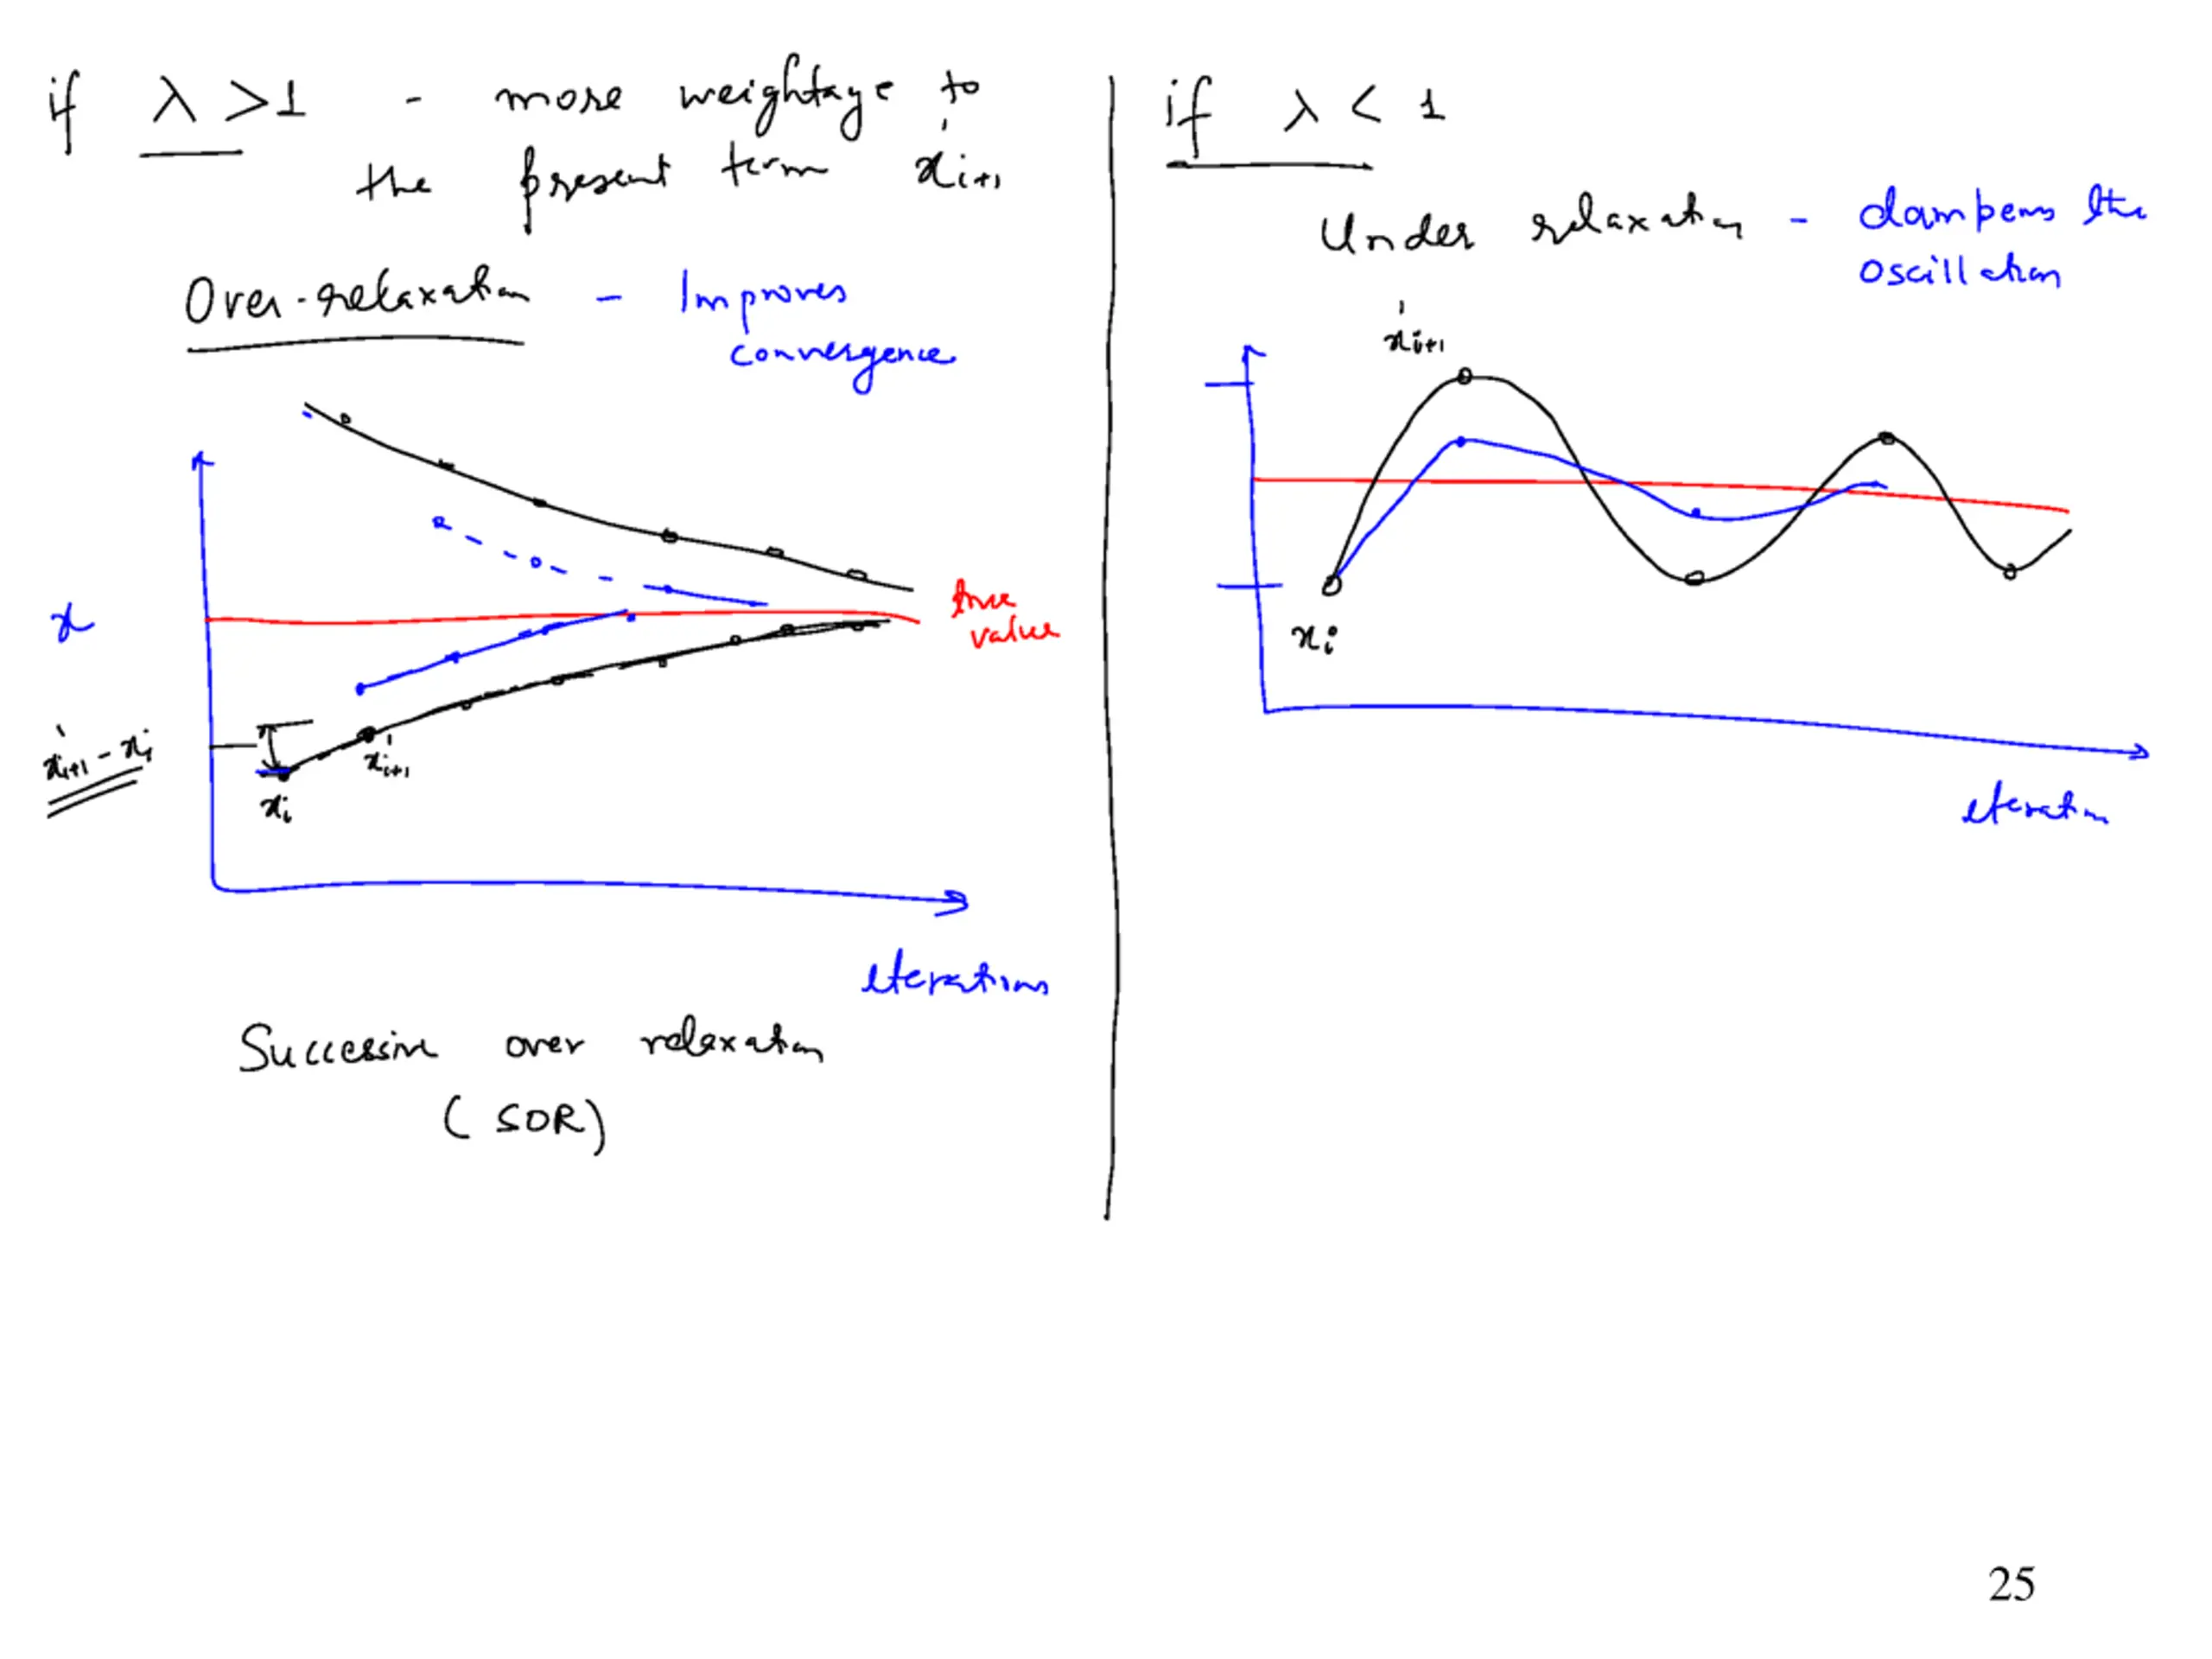 if λ > 1 - more weightage to
the present term x'i+1
Over-relaxation - Improves
convergence
x
true
value
x'i+1 - xi
x'i+1
xi
iterations
Successive over relaxation
(SOR)
if λ < 1
Under relaxation - dampens the
oscillation
x'i+1
xi
iteration
25